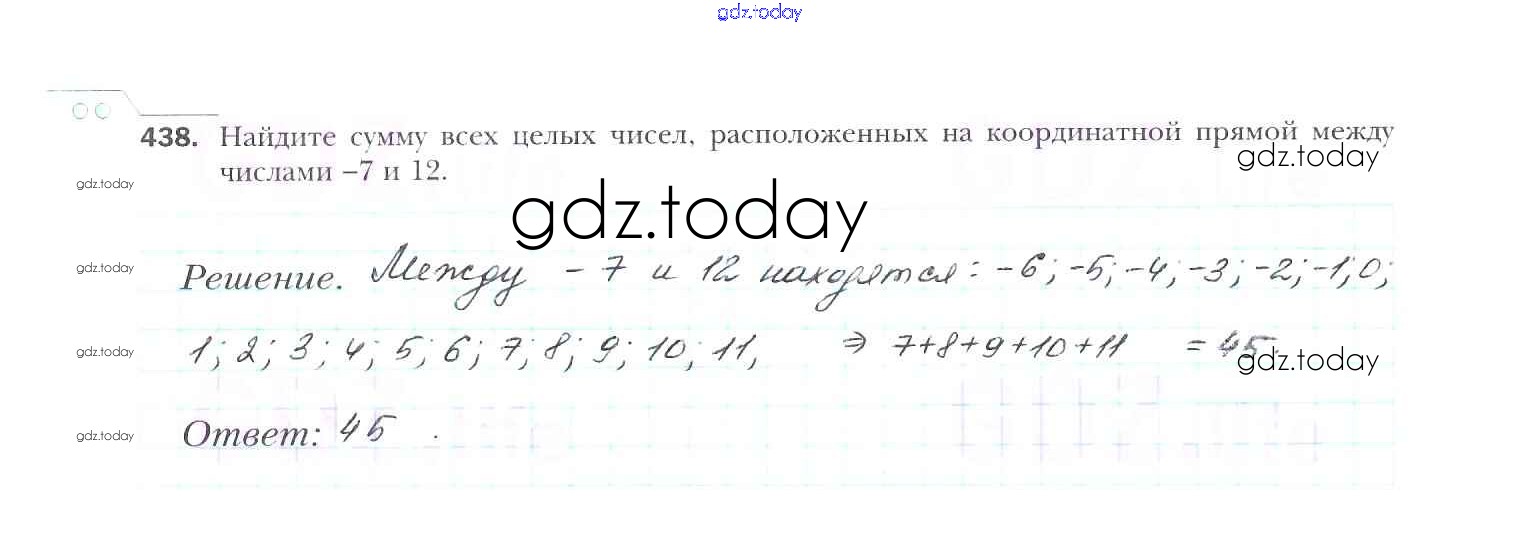 gdz.today
438. Найдите сумму всех целых чисел, расположенных на координатной прямой между
gdz.today
числами –7 и 12.
gdz.today
gdz.today
gdz.today
Решение. Между - 7 и 12 находятся: -6; -5; -4; -3; -2; -1; 0;
gdz.today
1; 2; 3; 4; 5; 6; 7; 8; 9; 10; 11, ⇒ 7+8+9+10+11 = 45.
gdz.today
gdz.today
Ответ: 45 .